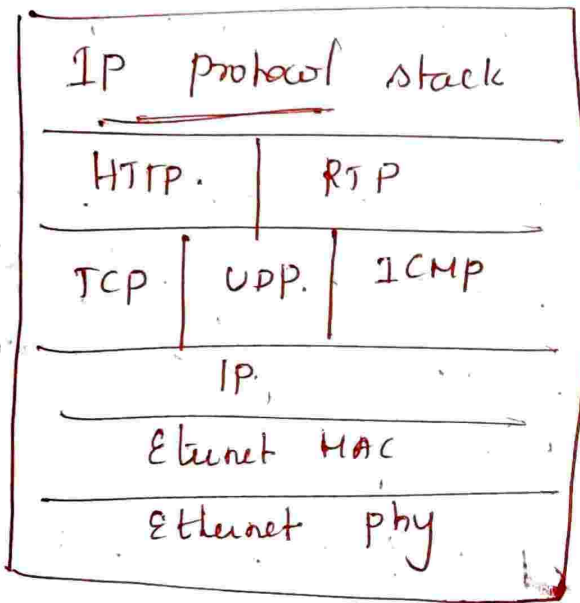 IP protocol stack
HTTP. RTP
TCP UDP. ICMP
IP.
Ethernet MAC
Ethernet phy